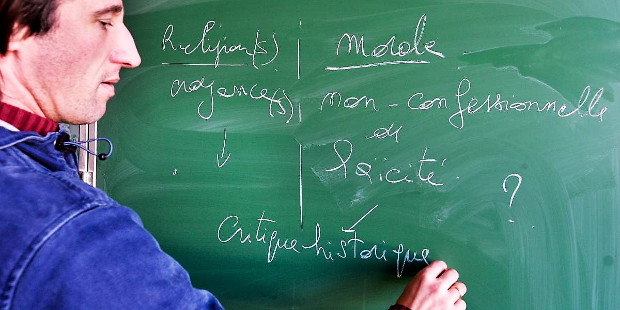 Religion(s)
croyance(s)
Morale
non-confessionnelle
de
laïcité.
?
Critique historique